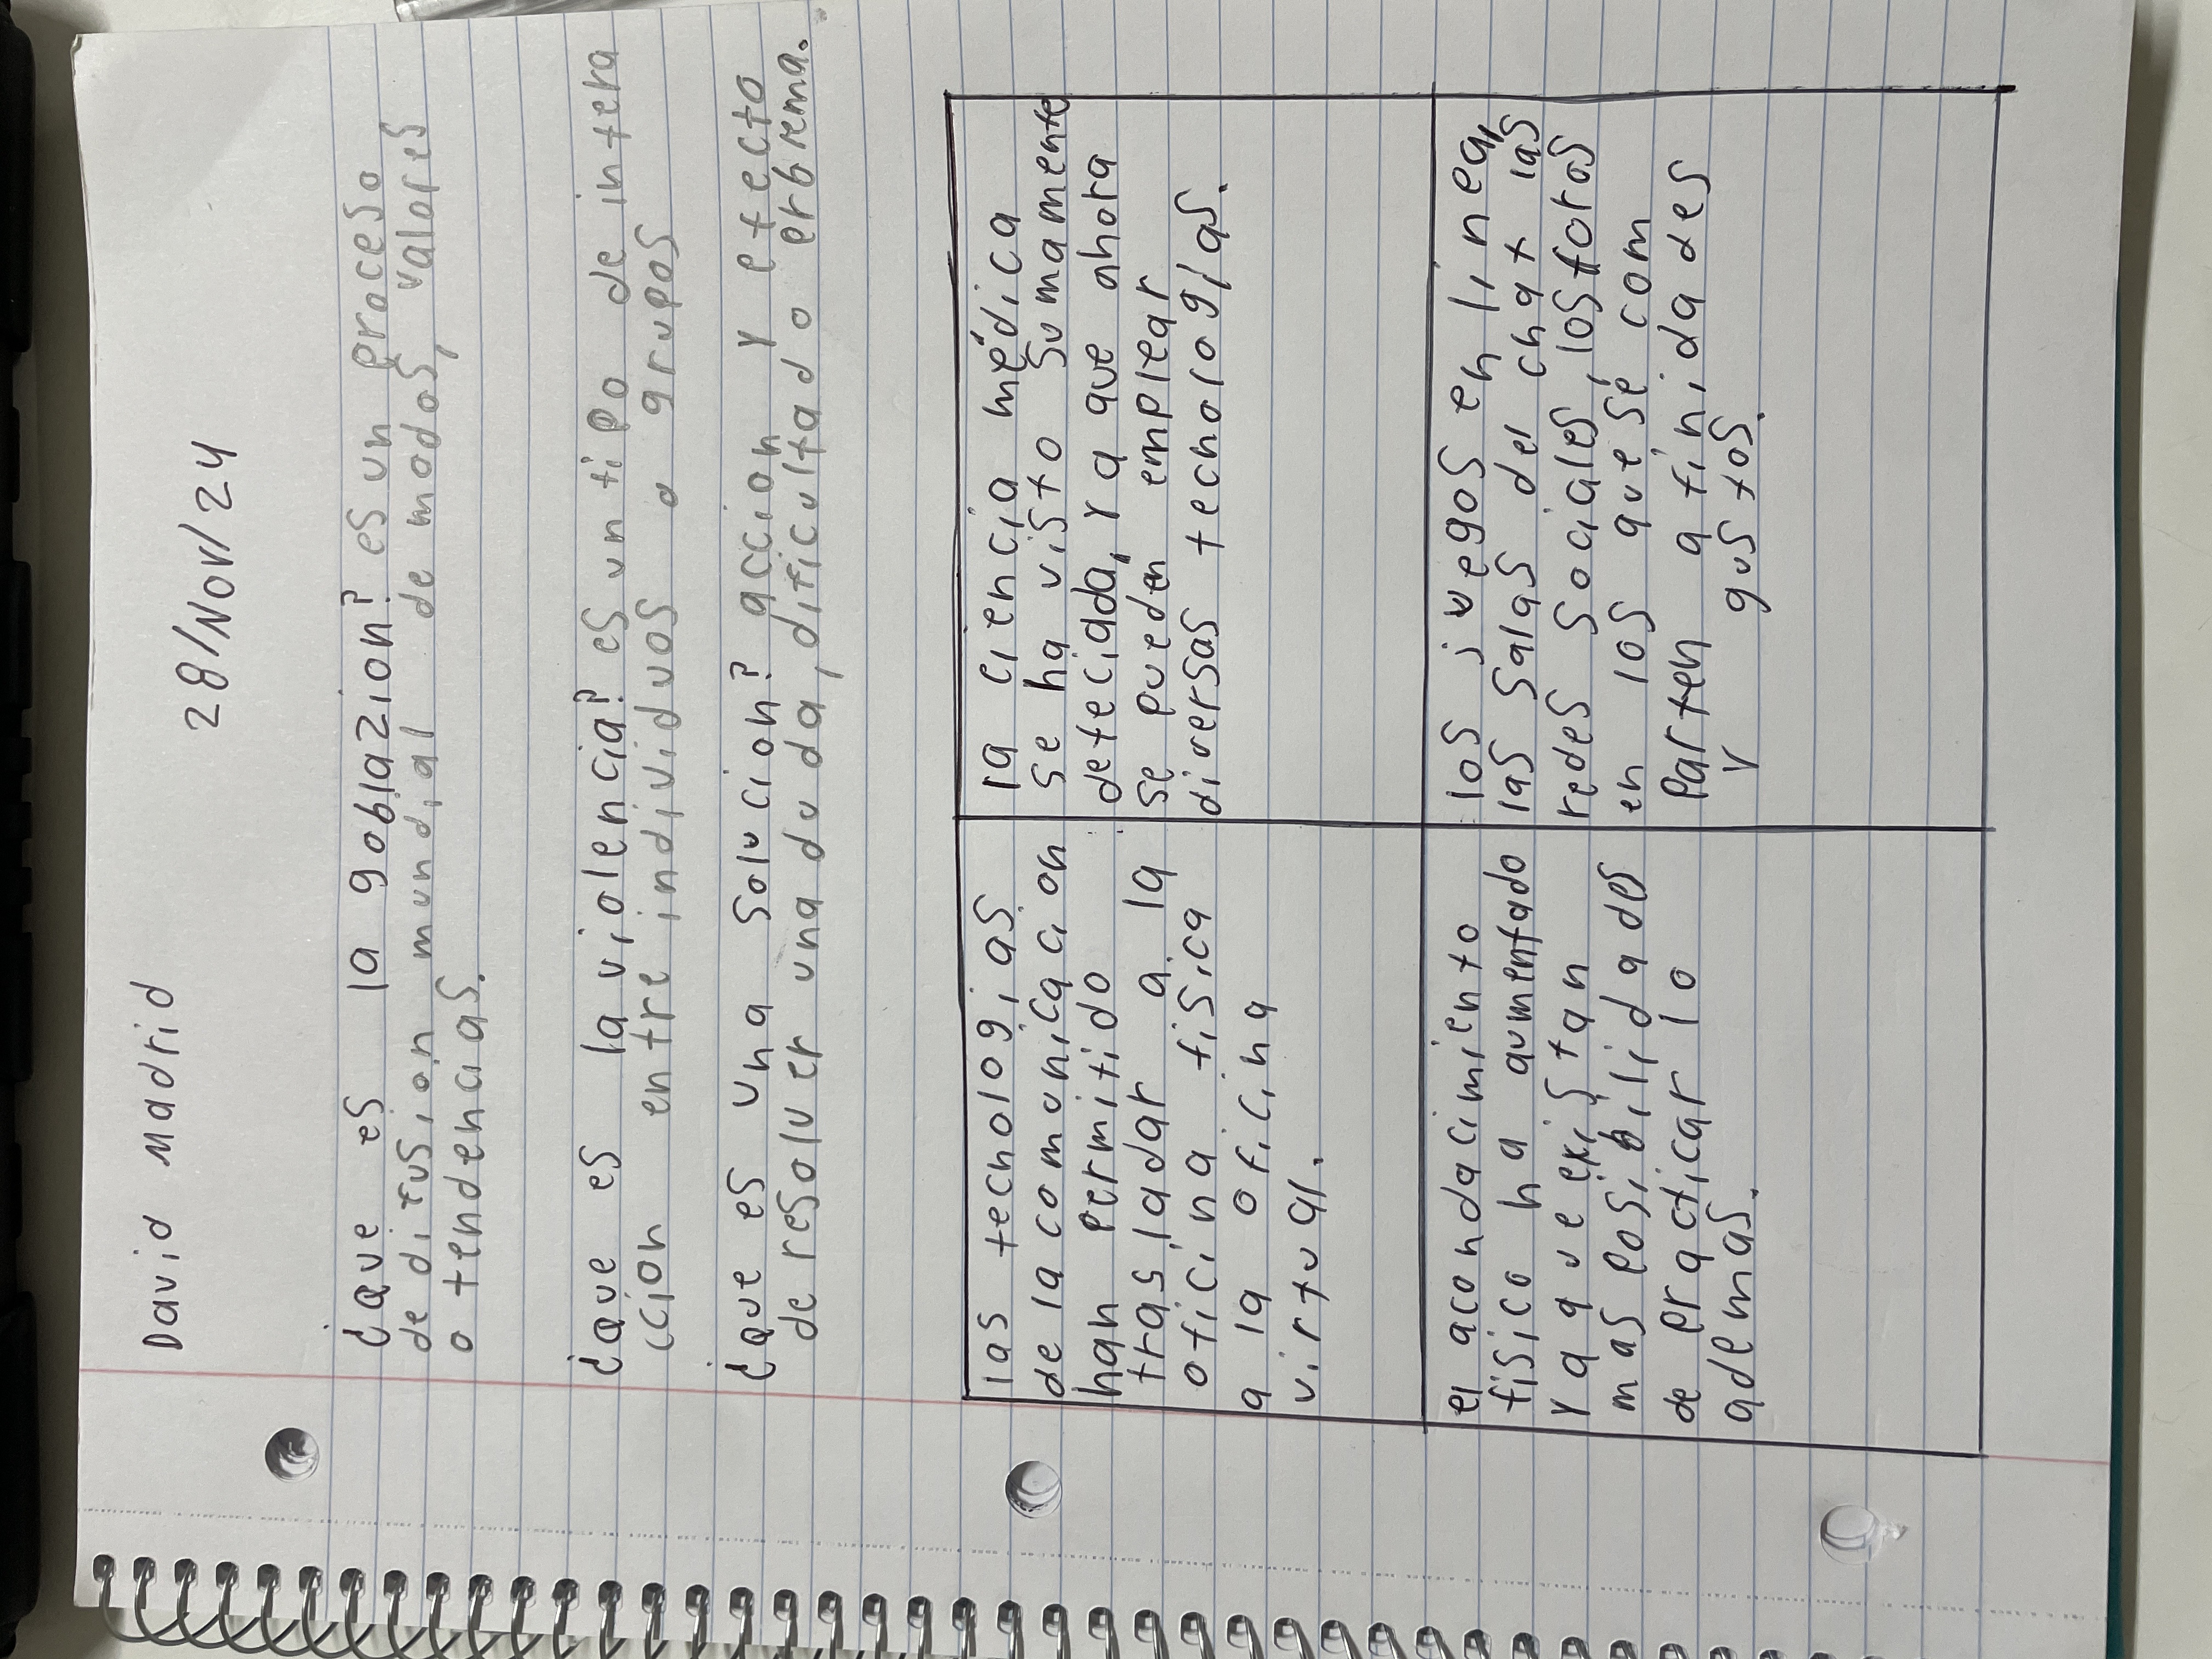 David Madrid
28/Nov/24
¿que es la goblazion? es un proceso
de difusion mundial de modos, valores
o tendencias.
¿que es la violencia? es un tipo de intera
ccion entre individuos o grupos
¿que es una solucion? accion y efecto
de resolver una duda, dificultad o prbrema.
las tecnologias
de la comunicacion
han permitido
trasladar a la
oficina fisica
a la oficina
virtual.
la ciencia médica
se ha visto sumamente
defeciada, ya que ahora
se pueden emplear
diversas tecnologias.
el acondacimiento
fisico ha aumentado
ya que existan
mas posibilidades
de practicar lo
ademas.
los juegos en linea,
las salas del chat las
redes sociales, los foros
en los que se com
parten afinidades
y gustos.